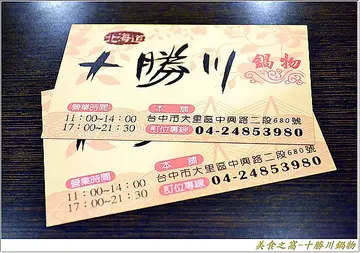 北海道
十勝川
鍋物
營業時間
11:00~14:00
17:00~21:30
本舖
台中市大里區中興路二段680號
訂位專線 04-24853980
營業時間
11:00~14:00
17:00~21:30
本舖
台中市大里區中興路二段680號
訂位專線 04-24853980
美食之窩-十勝川鍋物